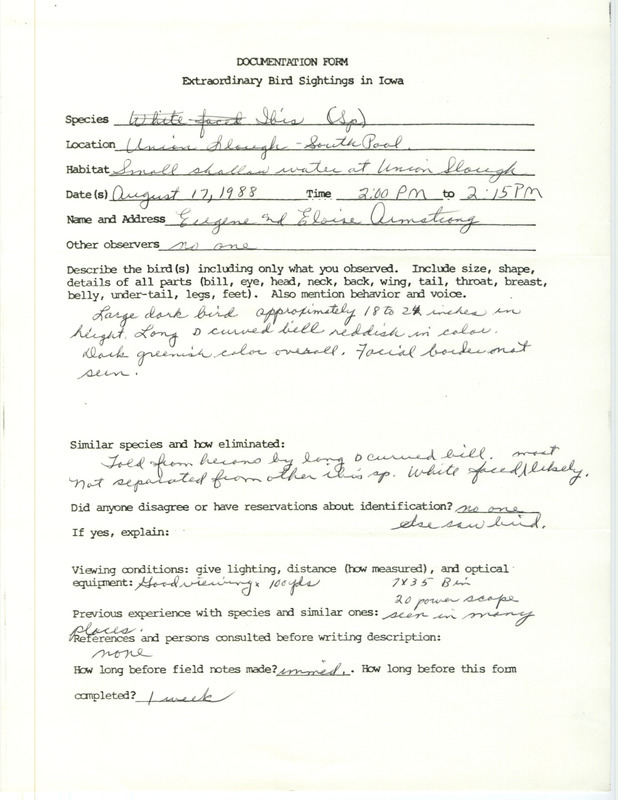 DOCUMENTATION FORM
Extraordinary Bird Sightings in Iowa
Species White-faced Ibis (Sp)
Location Union Slough - South Pool.
Habitat Small shallow water at Union Slough
Date(s) August 17, 1988 Time 2:00 PM to 2:15 PM
Name and Address Eugene and Eloise Armstrong
Other observers no one
Describe the bird(s) including only what you observed. Include size, shape,
details of all parts (bill, eye, head, neck, back, wing, tail, throat, breast,
belly, under-tail, legs, feet). Also mention behavior and voice.
Large dark bird approximately 18 to 24 inches in
height. Long D curved bill reddish in color.
Dark greenish color overall. Facial border not
seen.
Similar species and how eliminated:
Told from herons by long D curved bill. most
Not separated from other ibis sp. White faced likely.
Did anyone disagree or have reservations about identification? no one
else saw bird.
If yes, explain:
Viewing conditions: give lighting, distance (how measured), and optical
equipment: Good viewing 100 yds 7X35 Bin
20 power scope
Previous experience with species and similar ones: seen in many
places.
References and persons consulted before writing description:
none
How long before field notes made? immed.. How long before this form
completed? 1 week